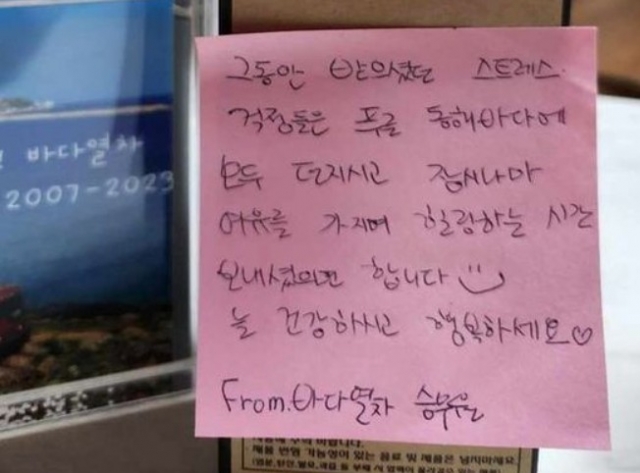 바다열차
2007-2023
그동안 받으셨던 스트레스.
걱정들은 푸른 동해바다에
모두 던지시고 잠시나마
여유를 가지며 힐링하는 시간
보내셨으면 합니다
늘 건강하시고 행복하세요♡
From.바다열차 승무원
제품 반영 가능성이 있는 음료 및 제품은 넣지마세요